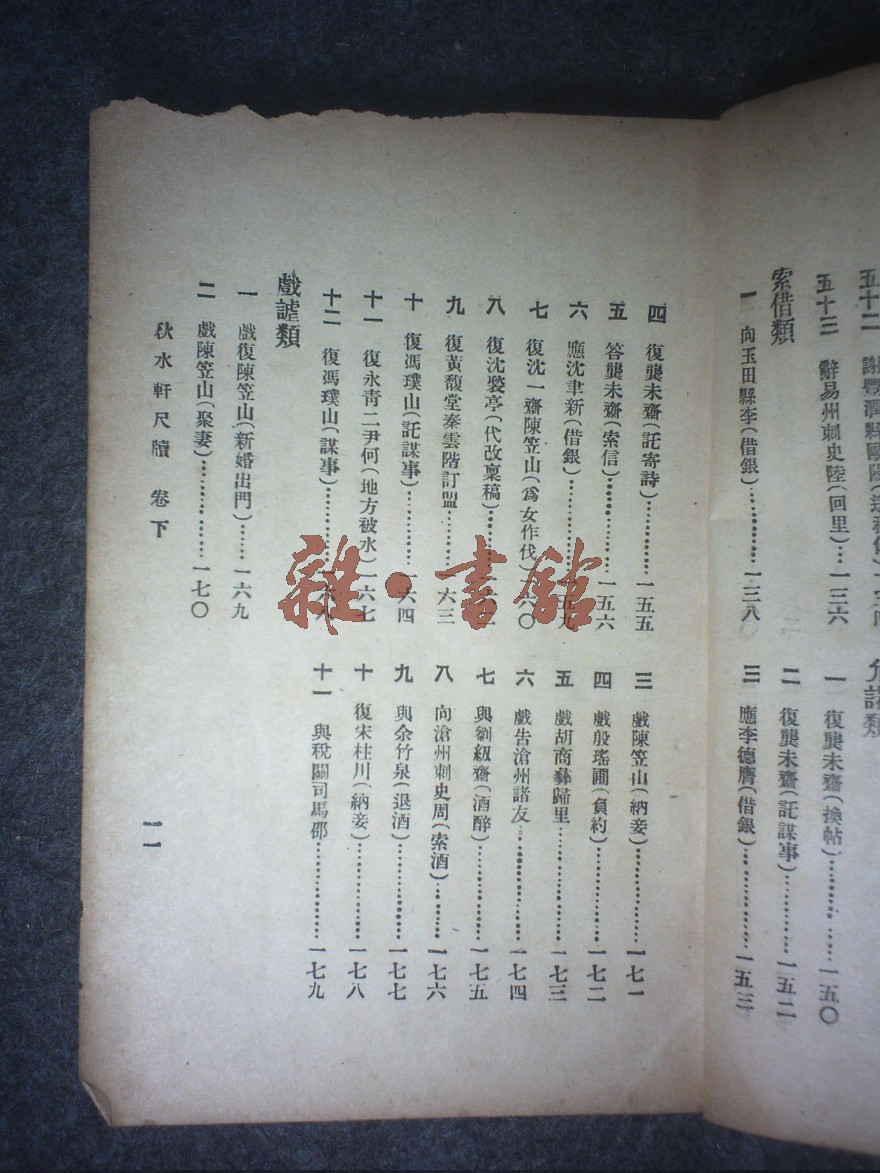 五十三　辭易州刺史陸(回里)…一三六
索借類
一　向玉田縣李(借銀)…………一三八
允諾類
一　復龔未齋(換帖)…………一五〇
二　復龔未齋(託謀事)…………一五二
三　應李德膺(借銀)…………一五三
四　復龔未齋(託寄詩)…………一五五
五　答龔未齋(索信)…………一五六
六　應沈聿新(借銀)…………一五九
七　復沈一齋陳笠山(爲女作伐)一六〇
八　復沈褧亭(代改稟稿)…………
九　復黃馥堂秦雲階訂盟…………一六三
十　復馮璞山(託謀事)…………一六四
十一　復永青二尹何(地方被水)一六七
十二　復馮璞山(謀事)…………一六八
戲謔類
一　戲復陳笠山(新婚出門)……一六九
二　戲陳笠山(聚妻)…………一七〇
三　戲陳笠山(納妾)…………一七一
四　戲殷瑤圃(負約)…………一七二
五　戲胡商彝歸里…………一七三
六　戲告滄州諸友…………一七四
七　與劉紉齋(酒醉)…………一七五
八　向滄州刺史周(索酒)………一七六
九　與余竹泉(退酒)…………一七七
十　復宋桂川(納妾)…………一七八
十一　與稅關司馬邵…………一七九
秋水軒尺牘　卷下
一一
雜·書館